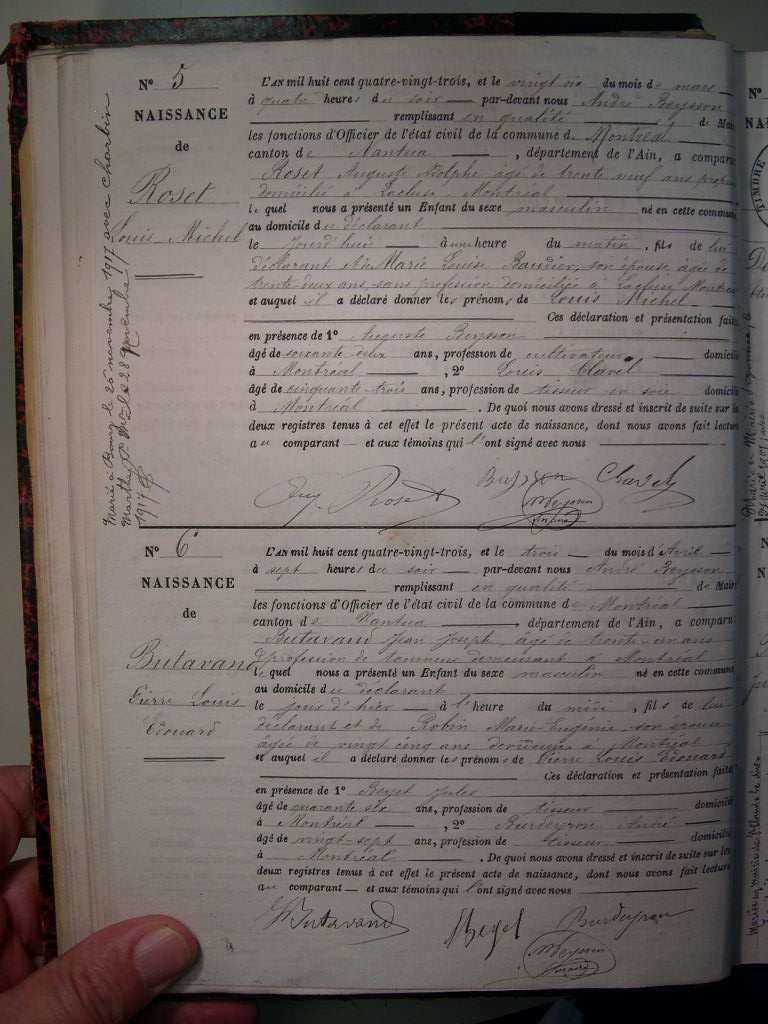 Nº 5
NAISSANCE
de
Roset
Louis Michel
Marié à Bourg le 26 novembre 1917 avec Charlin
Marthe
1917
L'AN mil huit cent quatre-vingt-trois, et le vingt six du mois de mars
à quatre heures du soir par-devant nous André Reysson
remplissant en qualité de Mair
les fonctions d'Officier de l'état civil de la commune de Montréal
canton de Nantua , département de l'Ain, a comparu
Roset Auguste Adolphe âgé de trente neuf ans
domicilié à Lacluse, Montréal
lequel nous a présenté un Enfant du sexe masculin né en cette commune
au domicile du déclarant
le jourd'hui à une heure du matin, fils de lui
déclarant et de Marie Louise Baudier, son épouse, âgée de
trente-deux ans, sans profession domiciliée à Lacluse, Montréal
et auquel il a déclaré donner les prénoms de Louis Michel
Ces déclaration et présentation faites
en présence de 1º Auguste Reysson
âgé de soixante-deux ans, profession de cultivateur domicilié
à Montréal , 2º Louis Clavel
âgé de cinquante-trois ans, profession de tisseur en soie domicilié
à Montréal . De quoi nous avons dressé et inscrit de suite sur les
deux registres tenus à cet effet le présent acte de naissance, dont nous avons fait lecture
au comparant et aux témoins qui l'ont signé avec nous
Aug. Roset
Nº 6
NAISSANCE
de
Butavand
Pierre Louis
Edouard
L'AN mil huit cent quatre-vingt-trois, et le trois du mois d'Avril
à sept heures du soir par-devant nous André Reysson
remplissant en qualité de Mair
les fonctions d'Officier de l'état civil de la commune de Montréal
canton de Nantua département de l'Ain, a comparu
Butavand Jean Joseph, âgé de trente-un ans
profession de tourneur demeurant à Montréal
lequel nous a présenté un Enfant du sexe masculin né en cette commune
au domicile du déclarant
le jour d'hier à l'heure du midi, fils de lui
déclarant et de Robin Marie-Eugénie son épouse
âgée de vingt cinq ans demeurant à Montréal
et auquel il a déclaré donner les prénoms de Pierre Louis Edouard
Ces déclaration et présentation faites
en présence de 1º Jules
âgé de quarante six ans, profession de tisseur domicilié
à Montréal , 2º Burdeyron André
âgé de vingt-sept ans, profession de tisseur domicilié
à Montréal . De quoi nous avons dressé et inscrit de suite sur les
deux registres tenus à cet effet le présent acte de naissance, dont nous avons fait lecture
au comparant et aux témoins qui l'ont signé avec nous
Butavand
Burdeyron
TIMBRE